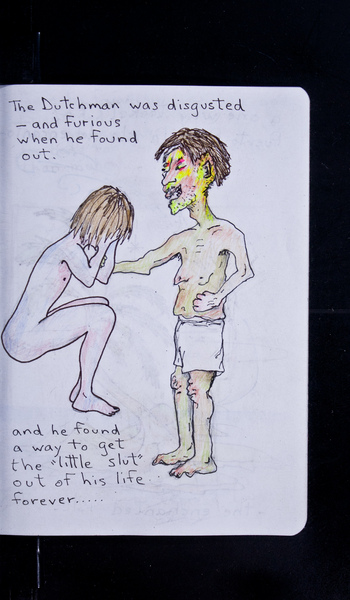 The Dutchman was disgusted
– and furious
when he found
out.
and he found
a way to get
the "little slut"
out of his life
forever.....